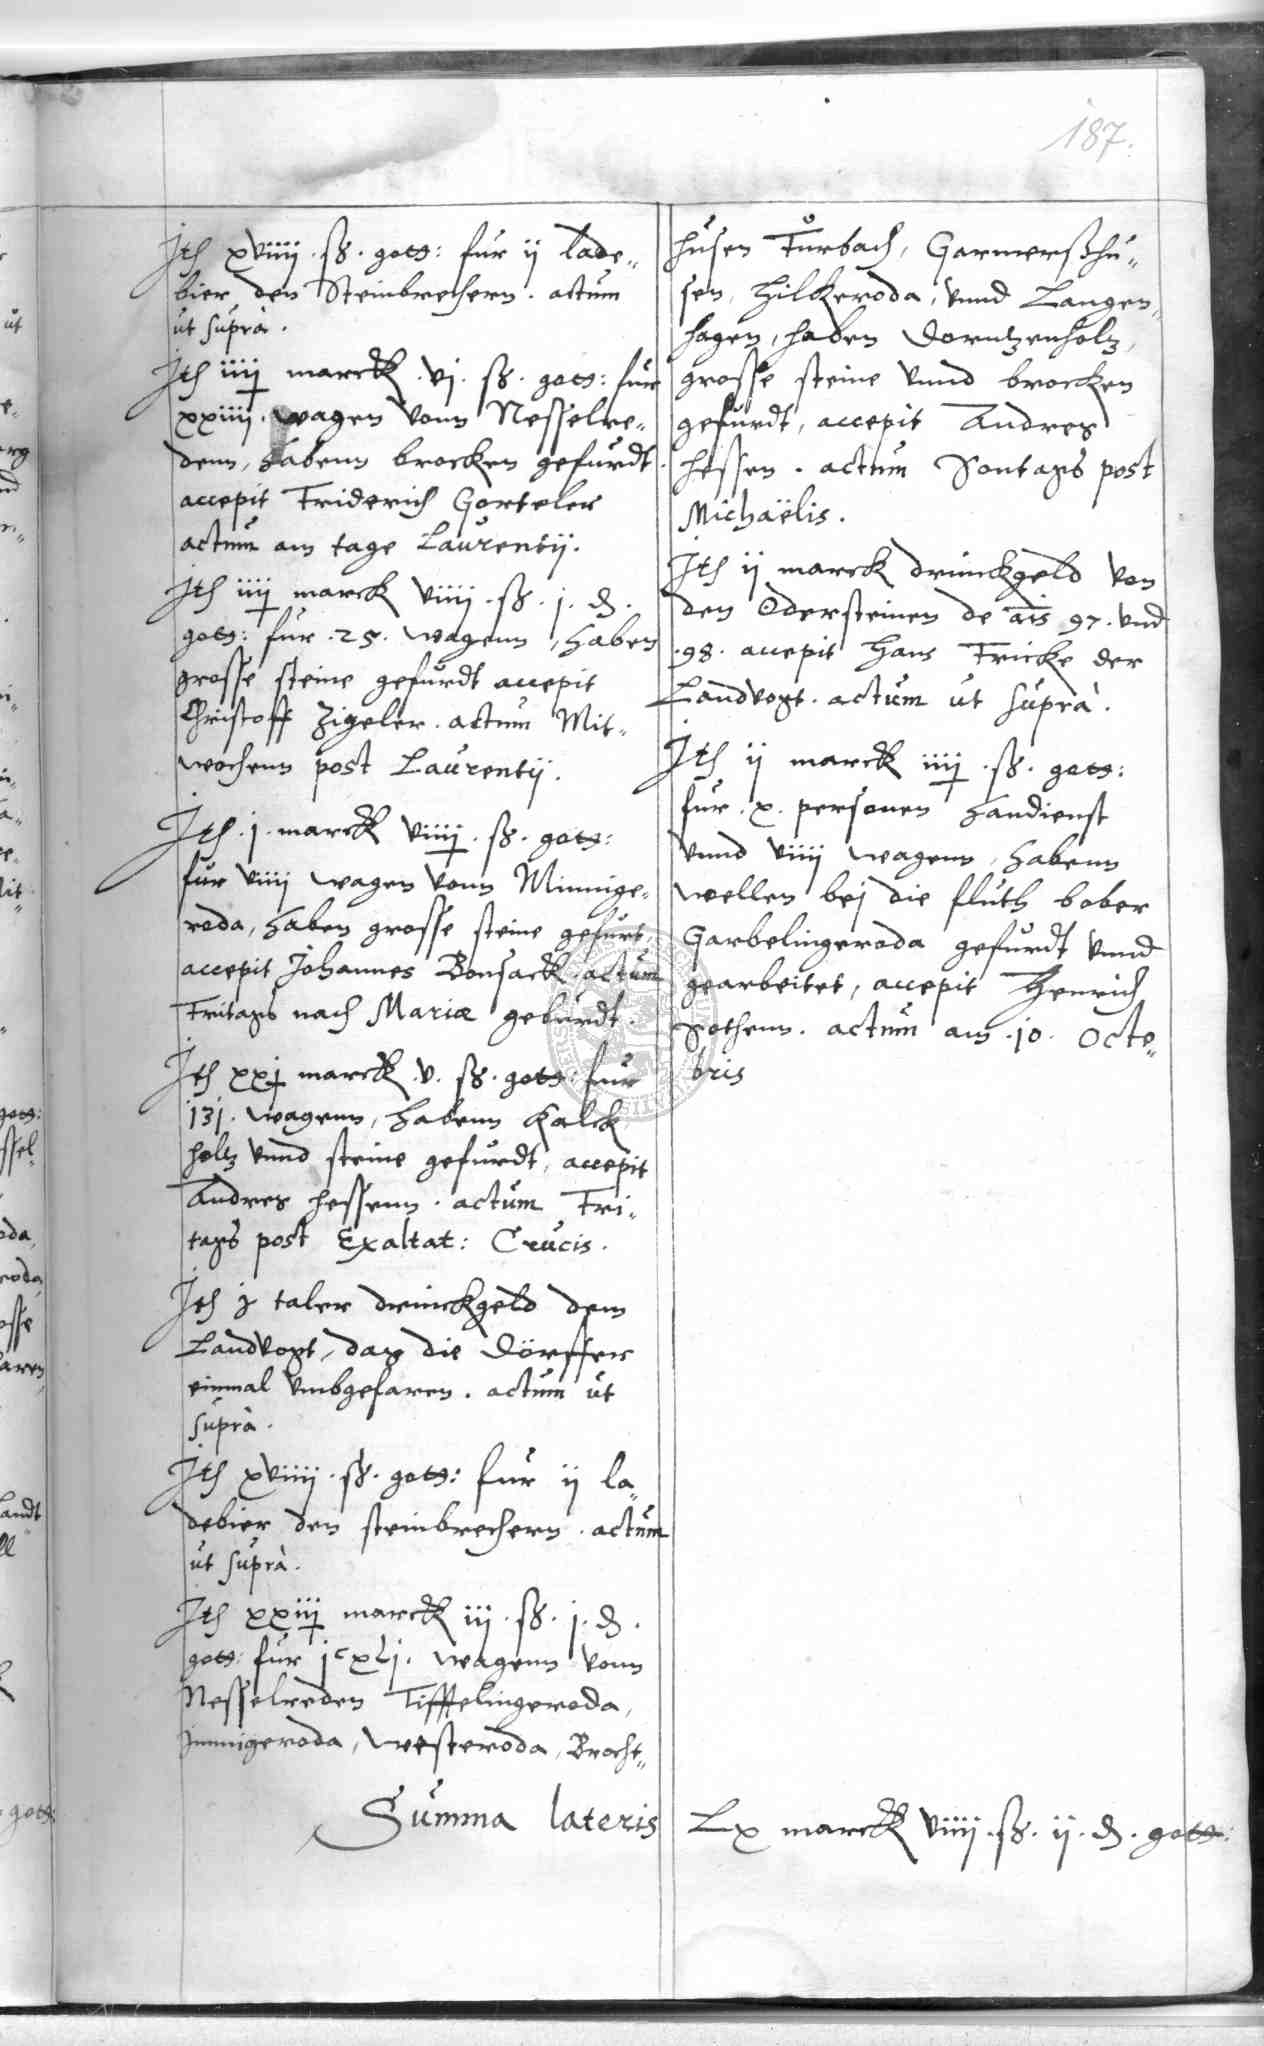 187.
Ith xviiij . ß . gots: fur ij lade„
bier den Steinbrechern . actum
ut suprà .
Ith iiij marck . vj . ß . gots: fur
xxiiij . wagen vonn Nesselre„
denn, habenn brocken gefurdt .
accepit Friderich Gorteler
actum am tage Laurentij .
Ith iiij marck viiij . ß . j . d .
gots: fur . 25 . wagenn, haben
grosse steine gefurdt accepit
Christoff Zigeler . actum Mit„
wochenn post Laurentij .
Ith . j . marck viiij . ß . gots:
fur viiij wagen vonn Minnige„
roda, haben grosse steine gefurt,
accepit Johannes Bonsack . actum
Fritags nach Mariæ geburdt .
Ith xxj marck . v . ß . gots: fur
131 . wagenn, habenn Kalck
holtz vnnd steine gefurdt, accepit
Andres Hessenn . actum Fri„
tags post Exaltat: Crucis .
Ith taler drinckgeld dem
Landvogt, das die Dörffer
einmal vmbgefaren . actum ut
suprà .
Ith xviiij . ß . gots: fur ij la„
debier den steinbrechern . actum
ut suprà .
Ith xxiij marck iij . ß . j . d .
gots: fur jcxlj . wagenn vonn
Nesselreden Tifftelingeroda,
Immigeroda, Westeroda, Brocht„
husen Furbach, Garmerßhu„
sen, Hilkeroda, vnnd Langen„
hagen, haben Dorntzenholtz,
grosse steine vnnd brocken
gefurdt, accepit Andres
Hessen . actum Sontags post
Michaëlis .
Ith ij marck drinckgeld von
den Odersteinen de ais 97 . vnd
. 98 . accepit Hans Fricke der
Landvogt . actum ut suprà .
Ith ij marck iiij . ß . gots:
fur . x . personen handienst
vnnd viiij wagenn, habenn
wellen bej die fluth bober
Garbelingeroda gefurdt vnnd
gearbeitet, accepit Henrich
Sothenn . actum am . 10 . Octo„
bris
Summa lateris Lx marck viiij . ß . ij . d . gots: